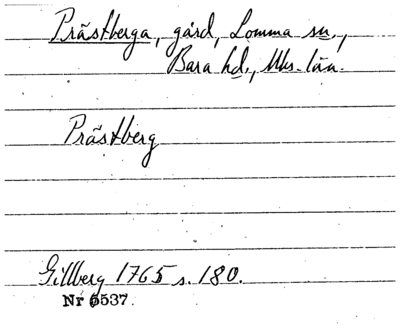 Prästberga, gård, Lomma sn.,
Bara hd., Mhs. län.
Prästberg
Gillberg 1765 s. 180.
Nr 6537.